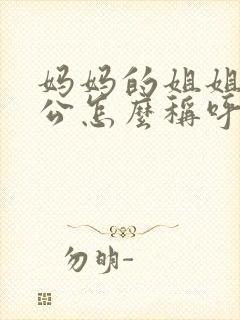 妈妈的姐姐
公怎麽稱呼
勿明-